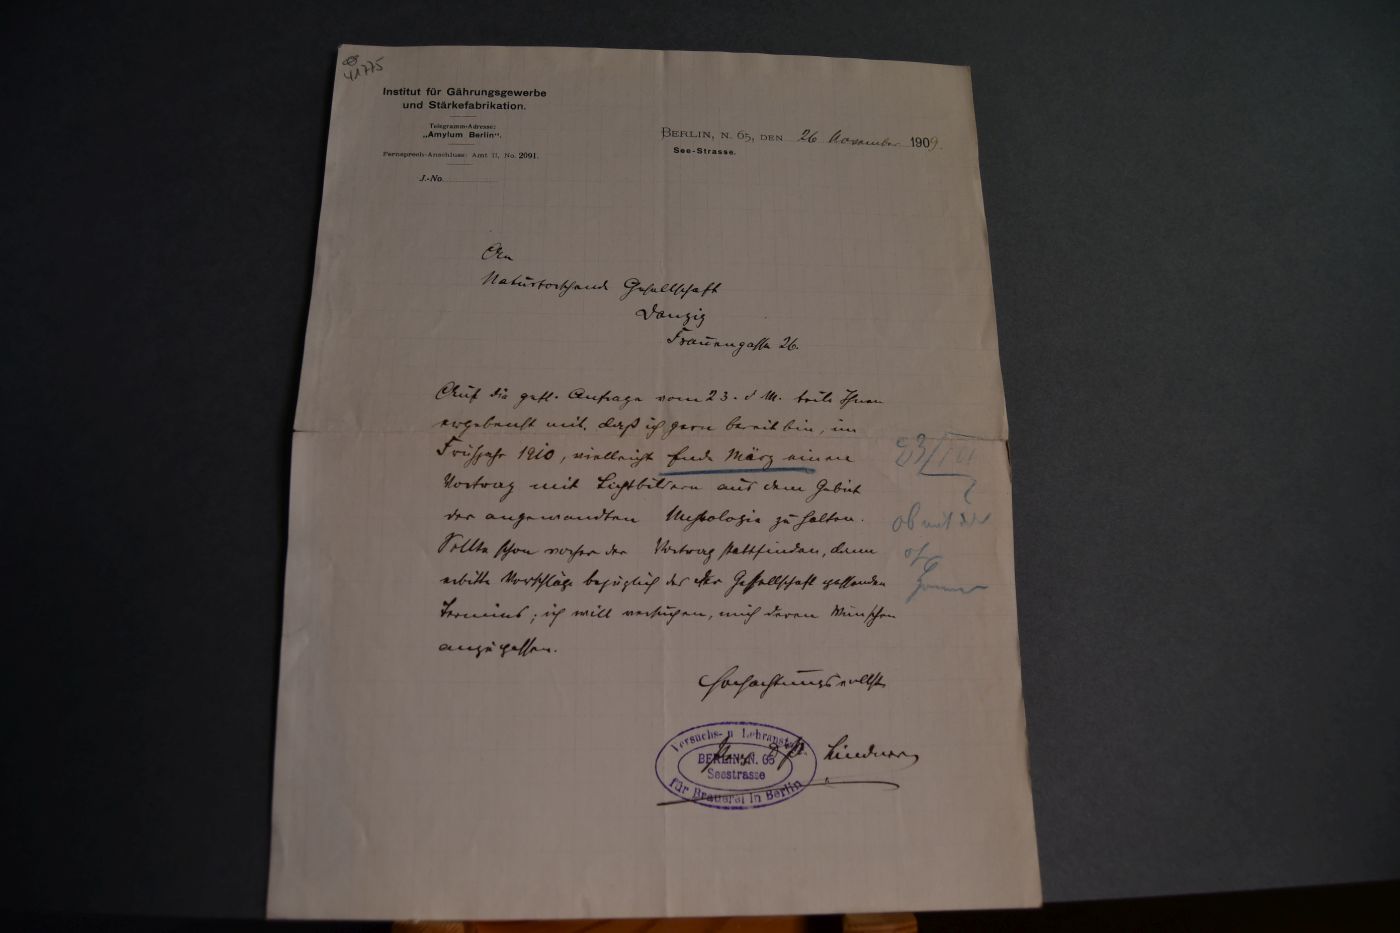 41775
Institut für Gährungsgewerbe
und Stärkefabrikation.
Telegramm-Adresse:
„Amylum Berlin“.
Fernsprech-Anschluss: Amt II, No. 2091.
J.-No.
BERLIN, N. 65, DEN 26 November 1909.
See-Strasse.
An
Naturforschende Gesellschaft
Danzig
Frauengasse 26.
Auf die gefl. Anfrage vom 23. d M. teile Ihnen
ergebenst mit, daß ich gern bereit bin, im
Frühjahr 1910, vielleicht Ende März einen
Vortrag mit Lichtbildern aus dem Gebiet
der angewandten Mykologie zu halten.
Sollte schon vorher der Vortrag stattfinden, dann
erbitte Vorschläge bezüglich des der Gesellschaft passenden
Termins; ich will versuchen, mich deren Wünschen
anzupassen.
Hochachtungsvollst
Prof. Dr. P. Lindner
Versuchs- u Lehranstalt
BERLIN N. 65
Seestrasse
für Brauerei in Berlin
ob mit der